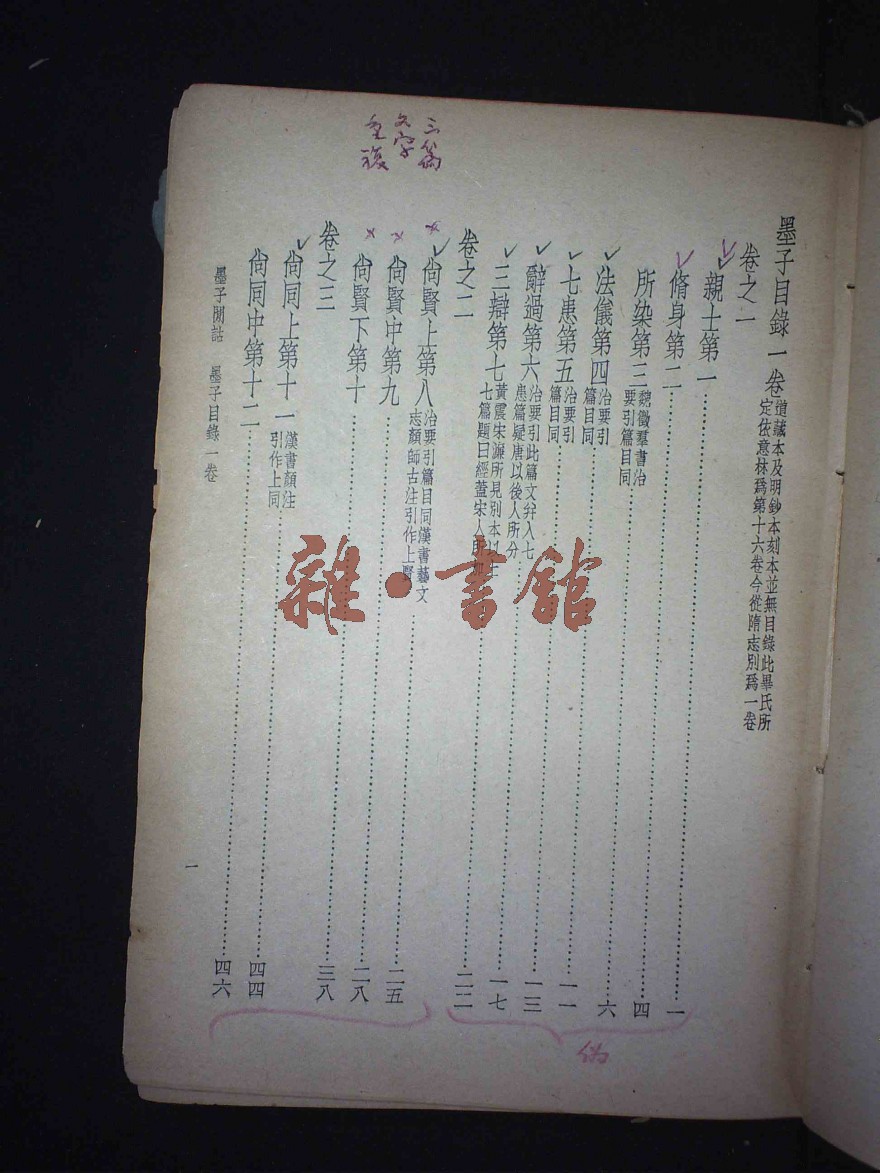 三篇
文字
重複
墨子目錄一卷 道藏本及明鈔本刻本並無目錄此畢氏所
定依意林爲第十六卷今從隋志別爲一卷
卷之一
親士第一
脩身第二 一
所染第三 魏徵羣書治
要引篇目同 四
法儀第四 治要引
篇目同 六
七患第五 治要引
篇目同 一一
辭過第六 治要引此篇文幷入七
患篇疑唐以後人所分 一三
三辯第七 黃震宋濂所見別本以上
七篇題曰經蓋宋人所加 一七
卷之二 二二
尙賢上第八 治要引篇目同漢書藝文
志顏師古注引作上賢
尙賢中第九 二五
尙賢下第十 二八
卷之三 三八
尙同上第十一 漢書顏注
引作上同 四四
尙同中第十二 四六
墨子閒詁 墨子目錄一卷
一
偽
雜·書館